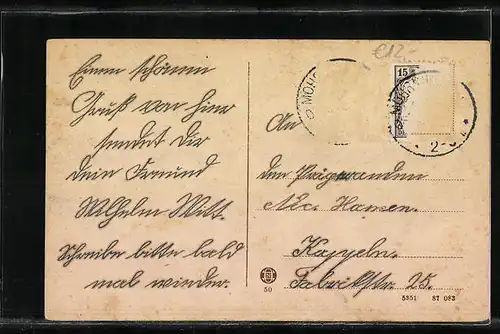 Einen schönen
Gruß von hier
sendet Dir
dein Freund
Wilhelm Witt.
Schreibe bitte bald
mal wieder.
€12.-
15
MOHR
2
An
den Präparanden
Hansen.
Kappeln.
Fabrikstr. 25.
50
5551 87 083